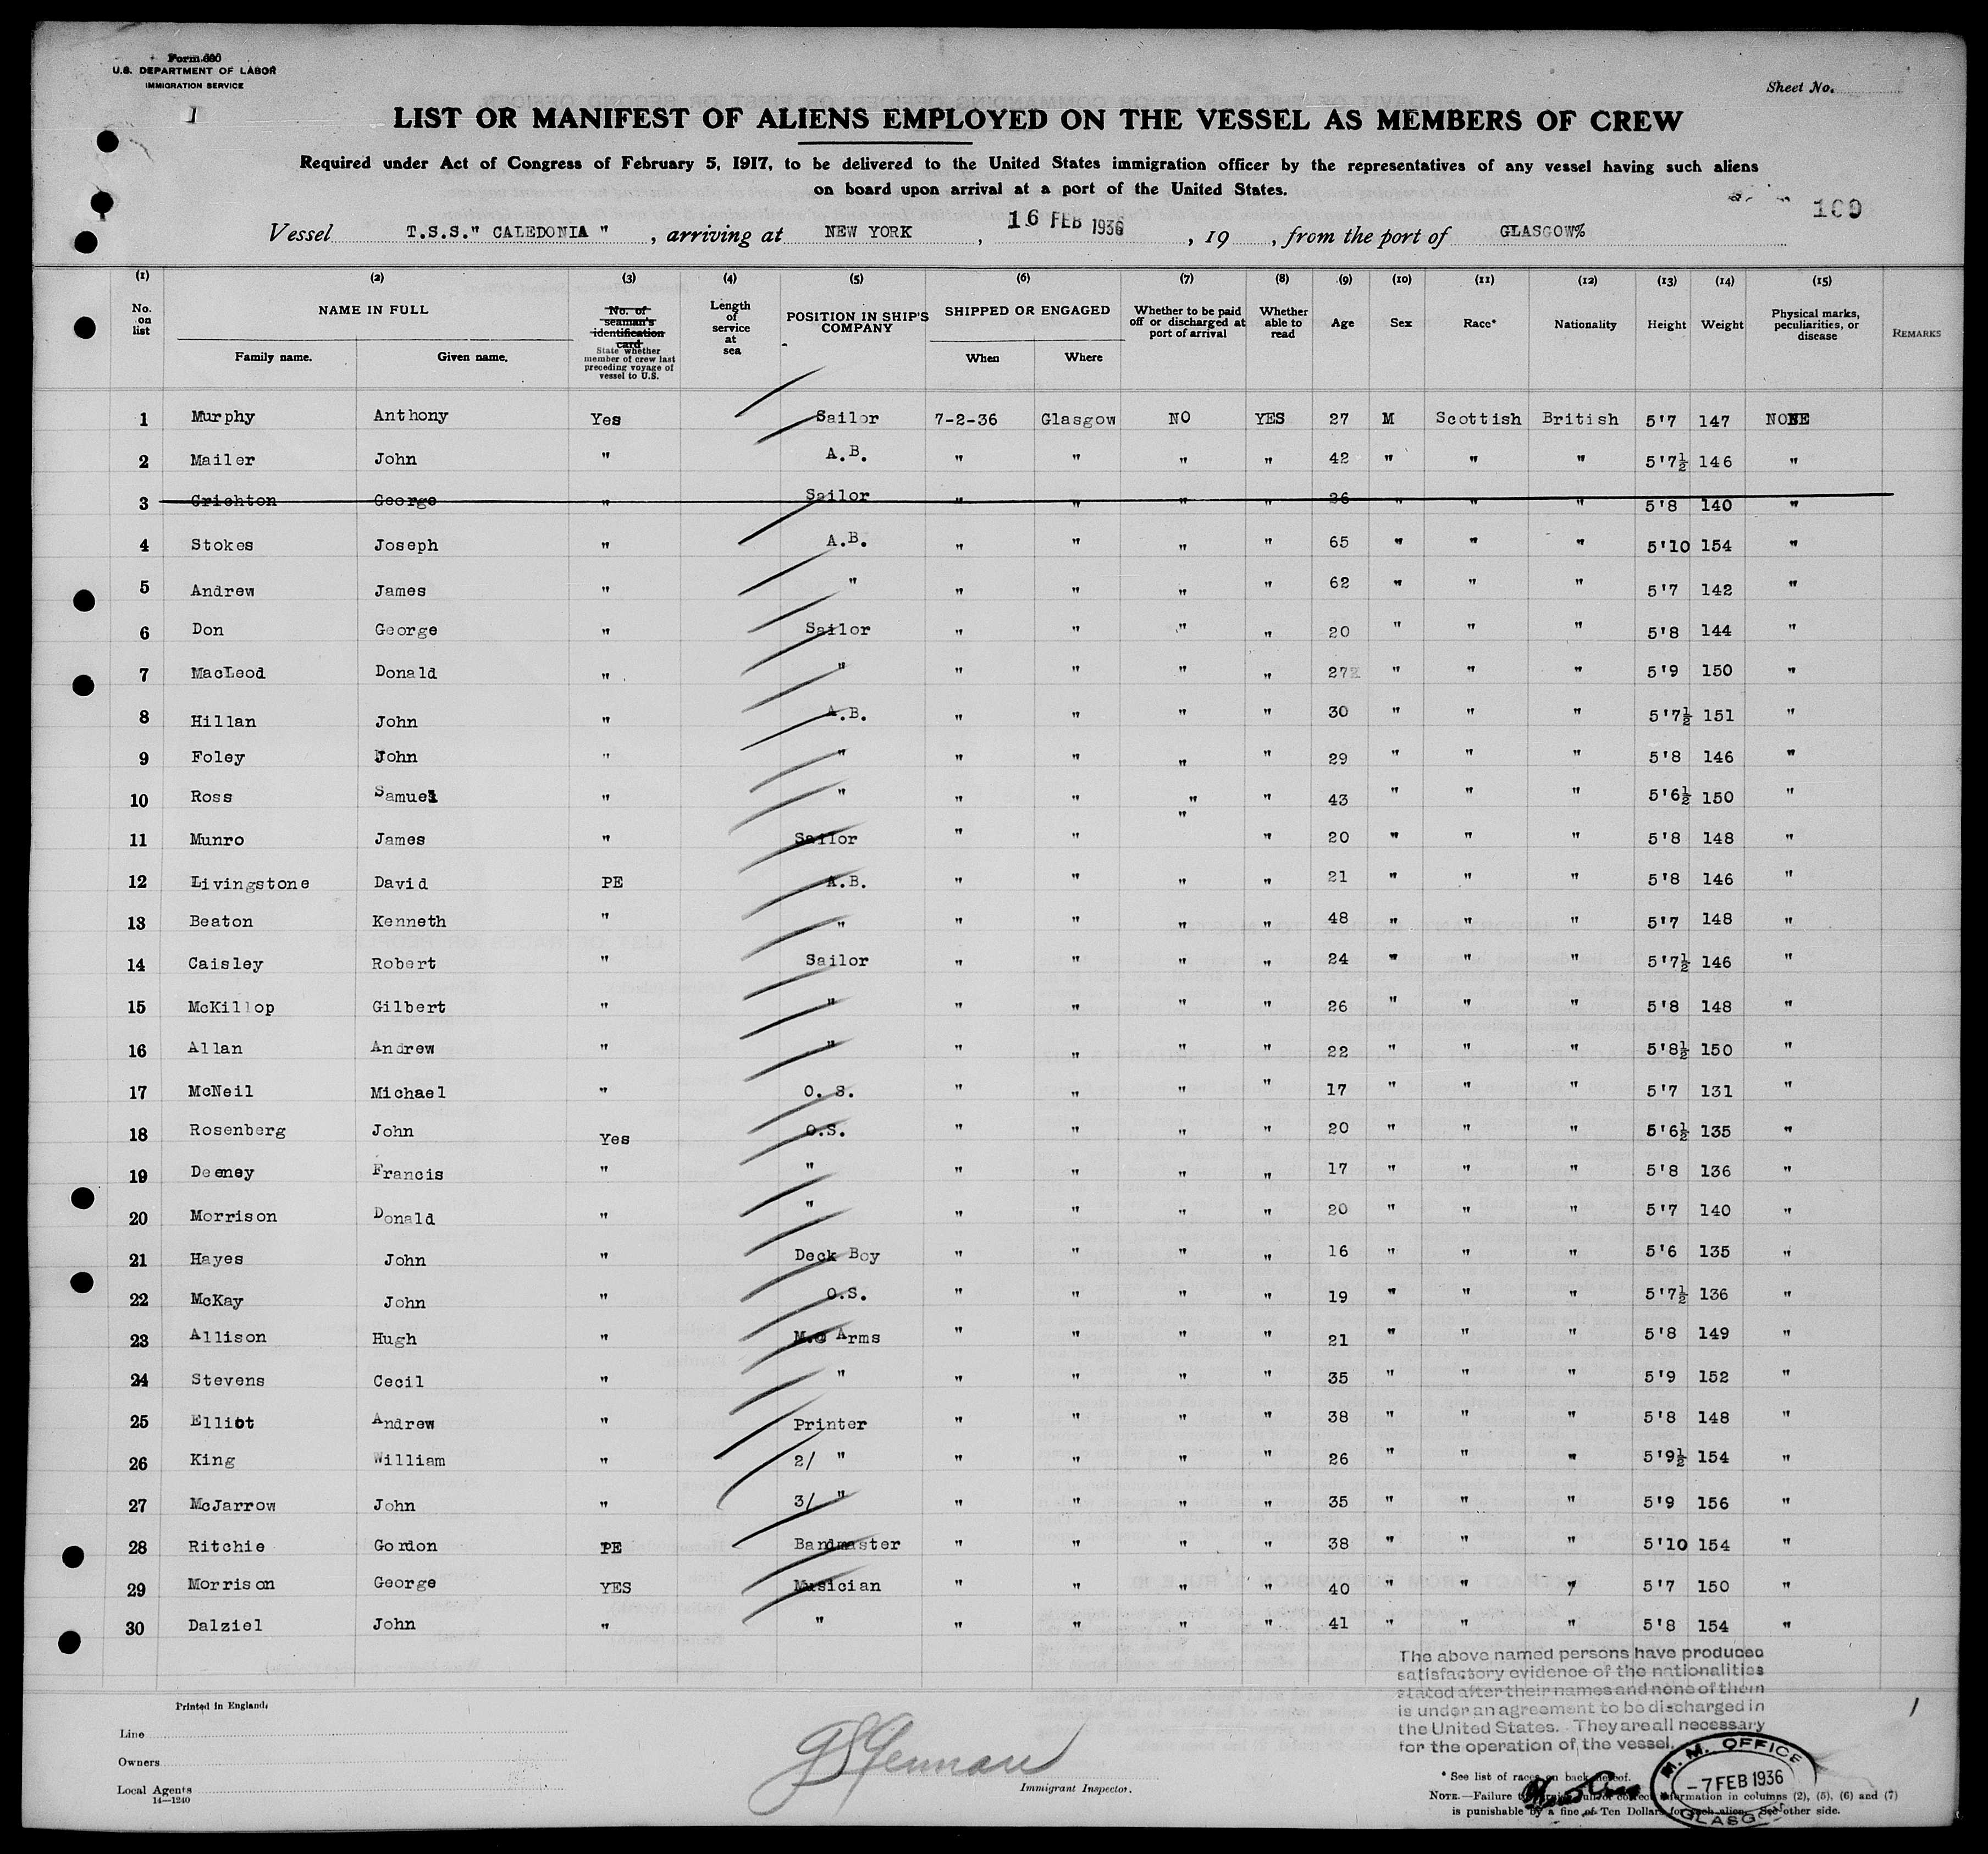 Form 680
U.S. DEPARTMENT OF LABOR
IMMIGRATION SERVICE
Sheet No.
1
LIST OR MANIFEST OF ALIENS EMPLOYED ON THE VESSEL AS MEMBERS OF CREW
Required under Act of Congress of February 5, 1917, to be delivered to the United States immigration officer by the representatives of any vessel having such aliens
on board upon arrival at a port of the United States.
169
Vessel T.S.S." CALEDONIA ", arriving at NEW YORK, 16 FEB 1936, 19 , from the port of GLASGOW%
(1) (2) (3) (4) (5) (6) (7) (8) (9) (10) (11) (12) (13) (14) (15)
No. on list NAME IN FULL Family name. Given name. No. of seaman's identification card State whether member of crew last preceding voyage of vessel to U.S. Length of service at sea POSITION IN SHIP'S COMPANY SHIPPED OR ENGAGED When Where Whether to be paid off or discharged at port of arrival Whether able to read Age Sex Race* Nationality Height Weight Physical marks, peculiarities, or disease REMARKS
1 Murphy Anthony Yes Sailor 7-2-36 Glasgow NO YES 27 M Scottish British 5'7 147 NONE
2 Mailer John " A.B. " " " " 42 " " " 5'7½ 146 "
3 Crichton George " Sailor " " " " 26 " " " 5'8 140 "
4 Stokes Joseph " A.B. " " " " 65 " " " 5'10 154 "
5 Andrew James " " " " " " 62 " " " 5'7 142 "
6 Don George " Sailor " " " " 20 " " " 5'8 144 "
7 MacLeod Donald " " " " " " 27 " " " 5'9 150 "
8 Hillan John " A.B. " " " " 30 " " " 5'7½ 151 "
9 Foley John " " " " " " 29 " " " 5'8 146 "
10 Ross Samuel " " " " " " 43 " " " 5'6½ 150 "
11 Munro James " Sailor " " " " 20 " " " 5'8 148 "
12 Livingstone David PE A.B. " " " " 21 " " " 5'8 146 "
13 Beaton Kenneth " " " " " " 48 " " " 5'7 148 "
14 Caisley Robert " Sailor " " " " 24 " " " 5'7½ 146 "
15 McKillop Gilbert " " " " " " 26 " " " 5'8 148 "
16 Allan Andrew " " " " " " 22 " " " 5'8½ 150 "
17 McNeil Michael " O.S. " " " " 17 " " " 5'7 131 "
18 Rosenberg John Yes O.S. " " " " 20 " " " 5'6½ 135 "
19 Deeney Francis " " " " " " 17 " " " 5'8 136 "
20 Morrison Donald " " " " " " 20 " " " 5'7 140 "
21 Hayes John " Deck Boy " " " " 16 " " " 5'6 135 "
22 McKay John " O.S. " " " " 19 " " " 5'7½ 136 "
23 Allison Hugh " M.@ Arms " " " " 21 " " " 5'8 149 "
24 Stevens Cecil " " " " " " 35 " " " 5'9 152 "
25 Elliot Andrew " Printer " " " " 38 " " " 5'8 148 "
26 King William " 2/ " " " " " 26 " " " 5'9½ 154 "
27 McJarrow John " 3/ " " " " " 35 " " " 5'9 156 "
28 Ritchie Gordon PE Bandmaster " " " " 38 " " " 5'10 154 "
29 Morrison George YES Musician " " " " 40 " " " 5'7 150 "
30 Dalziel John " " " " " " 41 " " " 5'8 154 "
The above named persons have produced
satisfactory evidence of the nationalities
stated after their names and none of them
is under an agreement to be discharged in
the United States. They are all necessary
for the operation of the vessel.
Printed in England.
Line
Owners
Local Agents
14—1240
Immigrant Inspector.
M.M. OFFICE
-7 FEB 1936
GLASGOW
* See list of races on back hereof.
NOTE.—Failure to furnish full or correct information in columns (2), (5), (6) and (7)
is punishable by a fine of Ten Dollars for each alien. See other side.